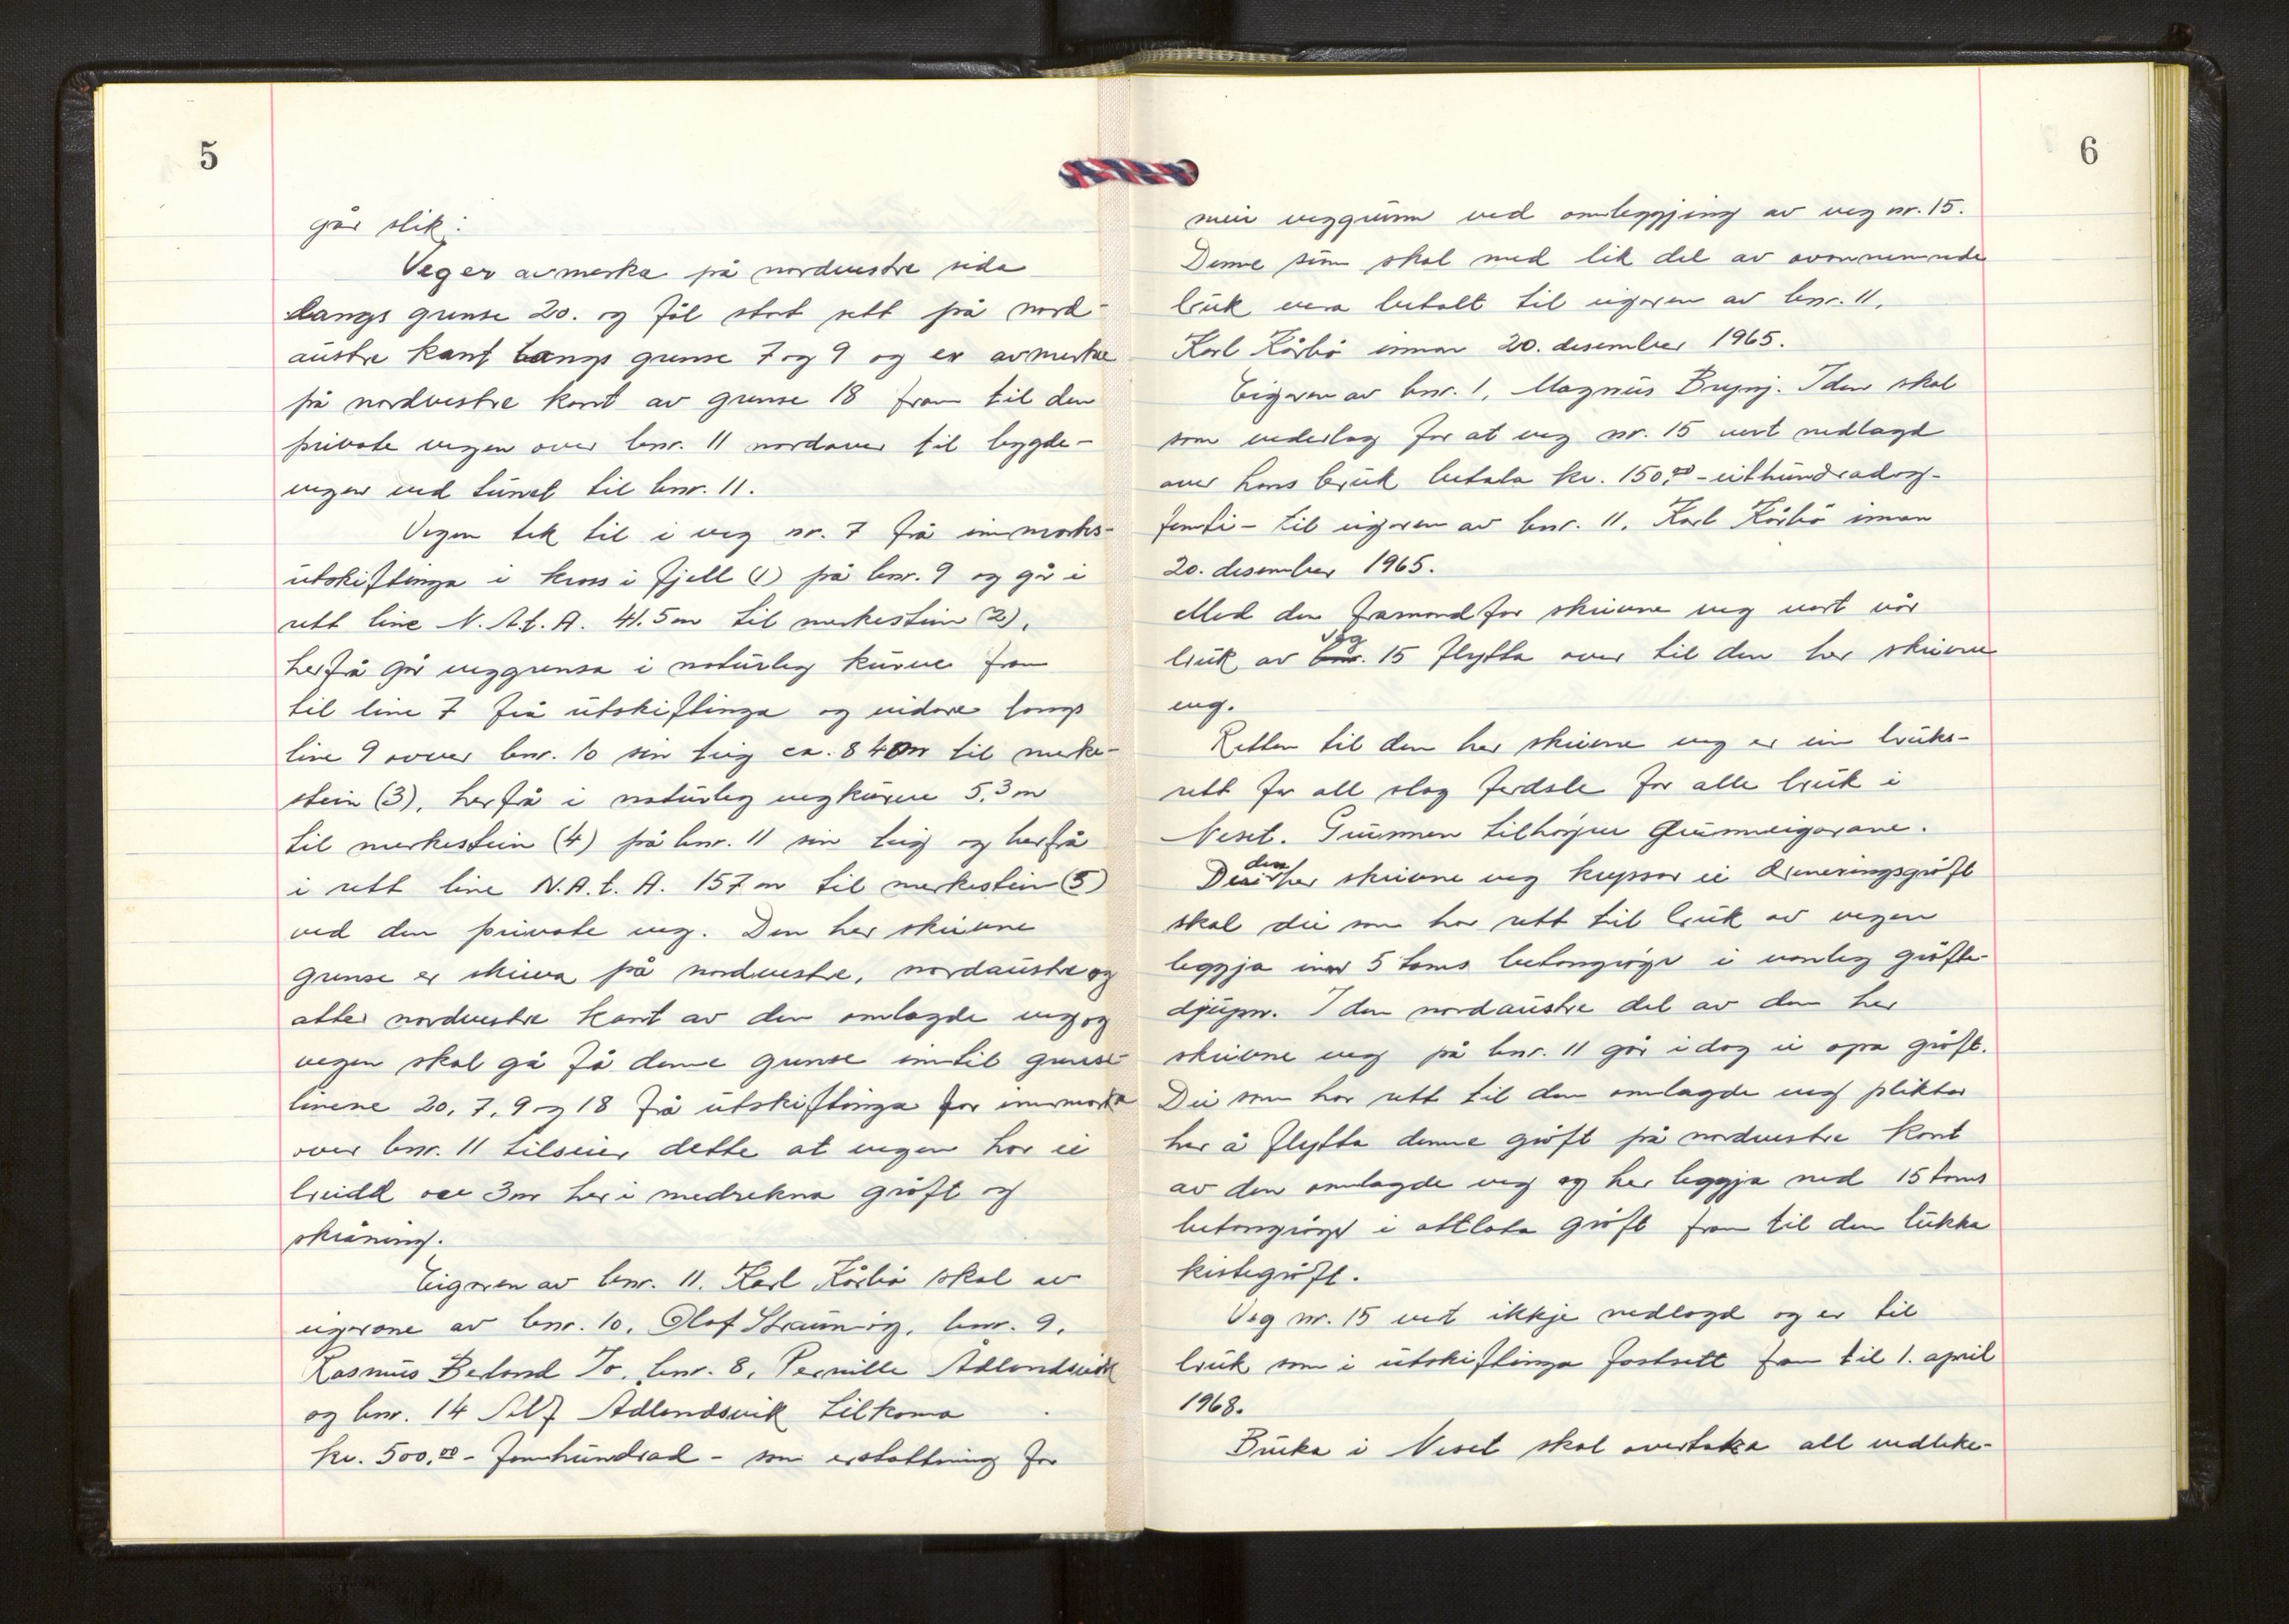 5
går slik:
Veg er avmerka på nordvestre sida
langs grense 20. og fòl stort sett på nord-
austre kant langs grense 7 og 9 og er avmerka
på nordvestre kant av grense 18 fram til den
private vegen over bnr. 11 nordover til bygde-
vegen ved tunet til bnr. 11.
Vegen tek til i veg nr. 7 frå innmarks-
utskiftinga i kross i fjell (1) på bnr. 9 og går i
rett line N.A.t.A. 41.5 m til merkestein (2),
herfrå går veggrensa i naturleg kurve fram
til line 7 frå utskiftinga og vidare langs
line 9 over bnr. 10 sin teig ca. 840m til merke-
stein (3), herfrå i naturleg vegkurve 5,3 m
til merkestein (4) på bnr. 11 sin teig og herfrå
i rett line N.A.t.A. 157 m til merkestein (5)
ved den private veg. Den her skrivne
grense er skriva på nordvestre, nordaustre og
atter nordvestre kant av den omlagde veg og
vegen skal gå frå denne grense inntil grense-
linene 20, 7, 9 og 18 frå utskiftinga for innmarka
over bnr. 11 tilseier dette at vegen har ei
breidd av 3m her i medrekna grøft og
skråning.
Eigaren av bnr. 11. Karl Kårbø skal av
eigarane av bnr. 10, Olaf Straumøy, bnr. 9,
Rasmus Berland Jo, bnr. 8, Pernille Ådlandsvik
og bnr. 14 Alf Ådlandsvik tilkoma
kr. 500,00 - femhundrad - som erstattning for
6
meir veggrunn ved omleggjing av veg nr. 15.
Denne sum skal med lik del av ovannemnde
bruk vera betalt til eigaren av bnr. 11,
Karl Kårbø innan 20. desember 1965.
Eigaren av bnr. 1, Magnus Brynj. Idsø skal
som vederlag for at veg nr. 15 vert nedlagd
over hans bruk betala kr. 150,00 - eitthundradog-
femti - til eigaren av bnr. 11. Karl Kårbø innan
20. desember 1965.
Med den framanfor skrivne veg vert vår
bruk av veg 15 flytta over til den her skrivne
veg.
Retten til den her skrivne veg er ein bruks-
rett for all slag ferdsle for alle bruk i
Neset. Grunnen tilhøyrer Grunneigarane.
Der den her skrivne veg kryssar ei dreneringsgrøft
skal dei som har rett til bruk av vegen
leggja inn 5 toms betongrøyr i vanleg grøfte-
djupn. I den nordaustre del av den her
skrivne veg på bnr. 11 går i dag ei open grøft.
Dei som har rett til den omlagde veg pliktar
her å flytta denne grøft på nordvestre kant
av den omlagde veg og her leggja ned 15 toms
betongrøyr i attlata grøft fram til den lukka
kistegrøft.
Veg nr. 15 vert ikkje nedlagd og er til
bruk som i utskiftinga fastsett fram til 1. april
1968.
Bruka i Neset skal overtaka all vedlike-